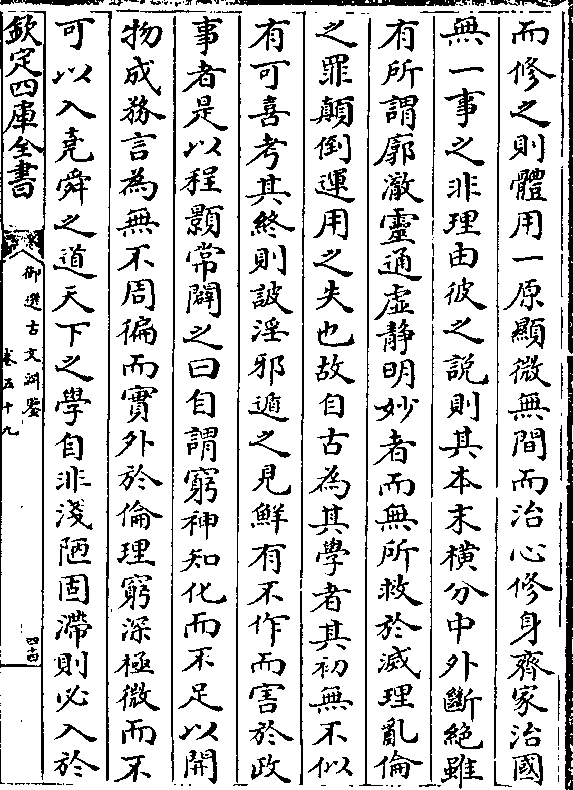 而修之則體用一原顯微無間而治心修身齊家治國
無一事之非理由彼之說則其本末橫分中外斷絕雖
有所謂廓澈靈通虛静明妙者而無所救於滅理亂倫
之罪顛倒運用之失也故自古為其學者其初無不似
有可喜考其終則詖淫邪遁之見鮮有不作而害於政
事者是以程顥常闢之曰自謂窮神知化而不足以開
物成務言為無不周徧而實外於倫理窮深極微而不
可以入堯舜之道天下之學自非淺陋固滯則必入於
欽定四庫全書
御選古文淵鑒
卷五十九
四十四